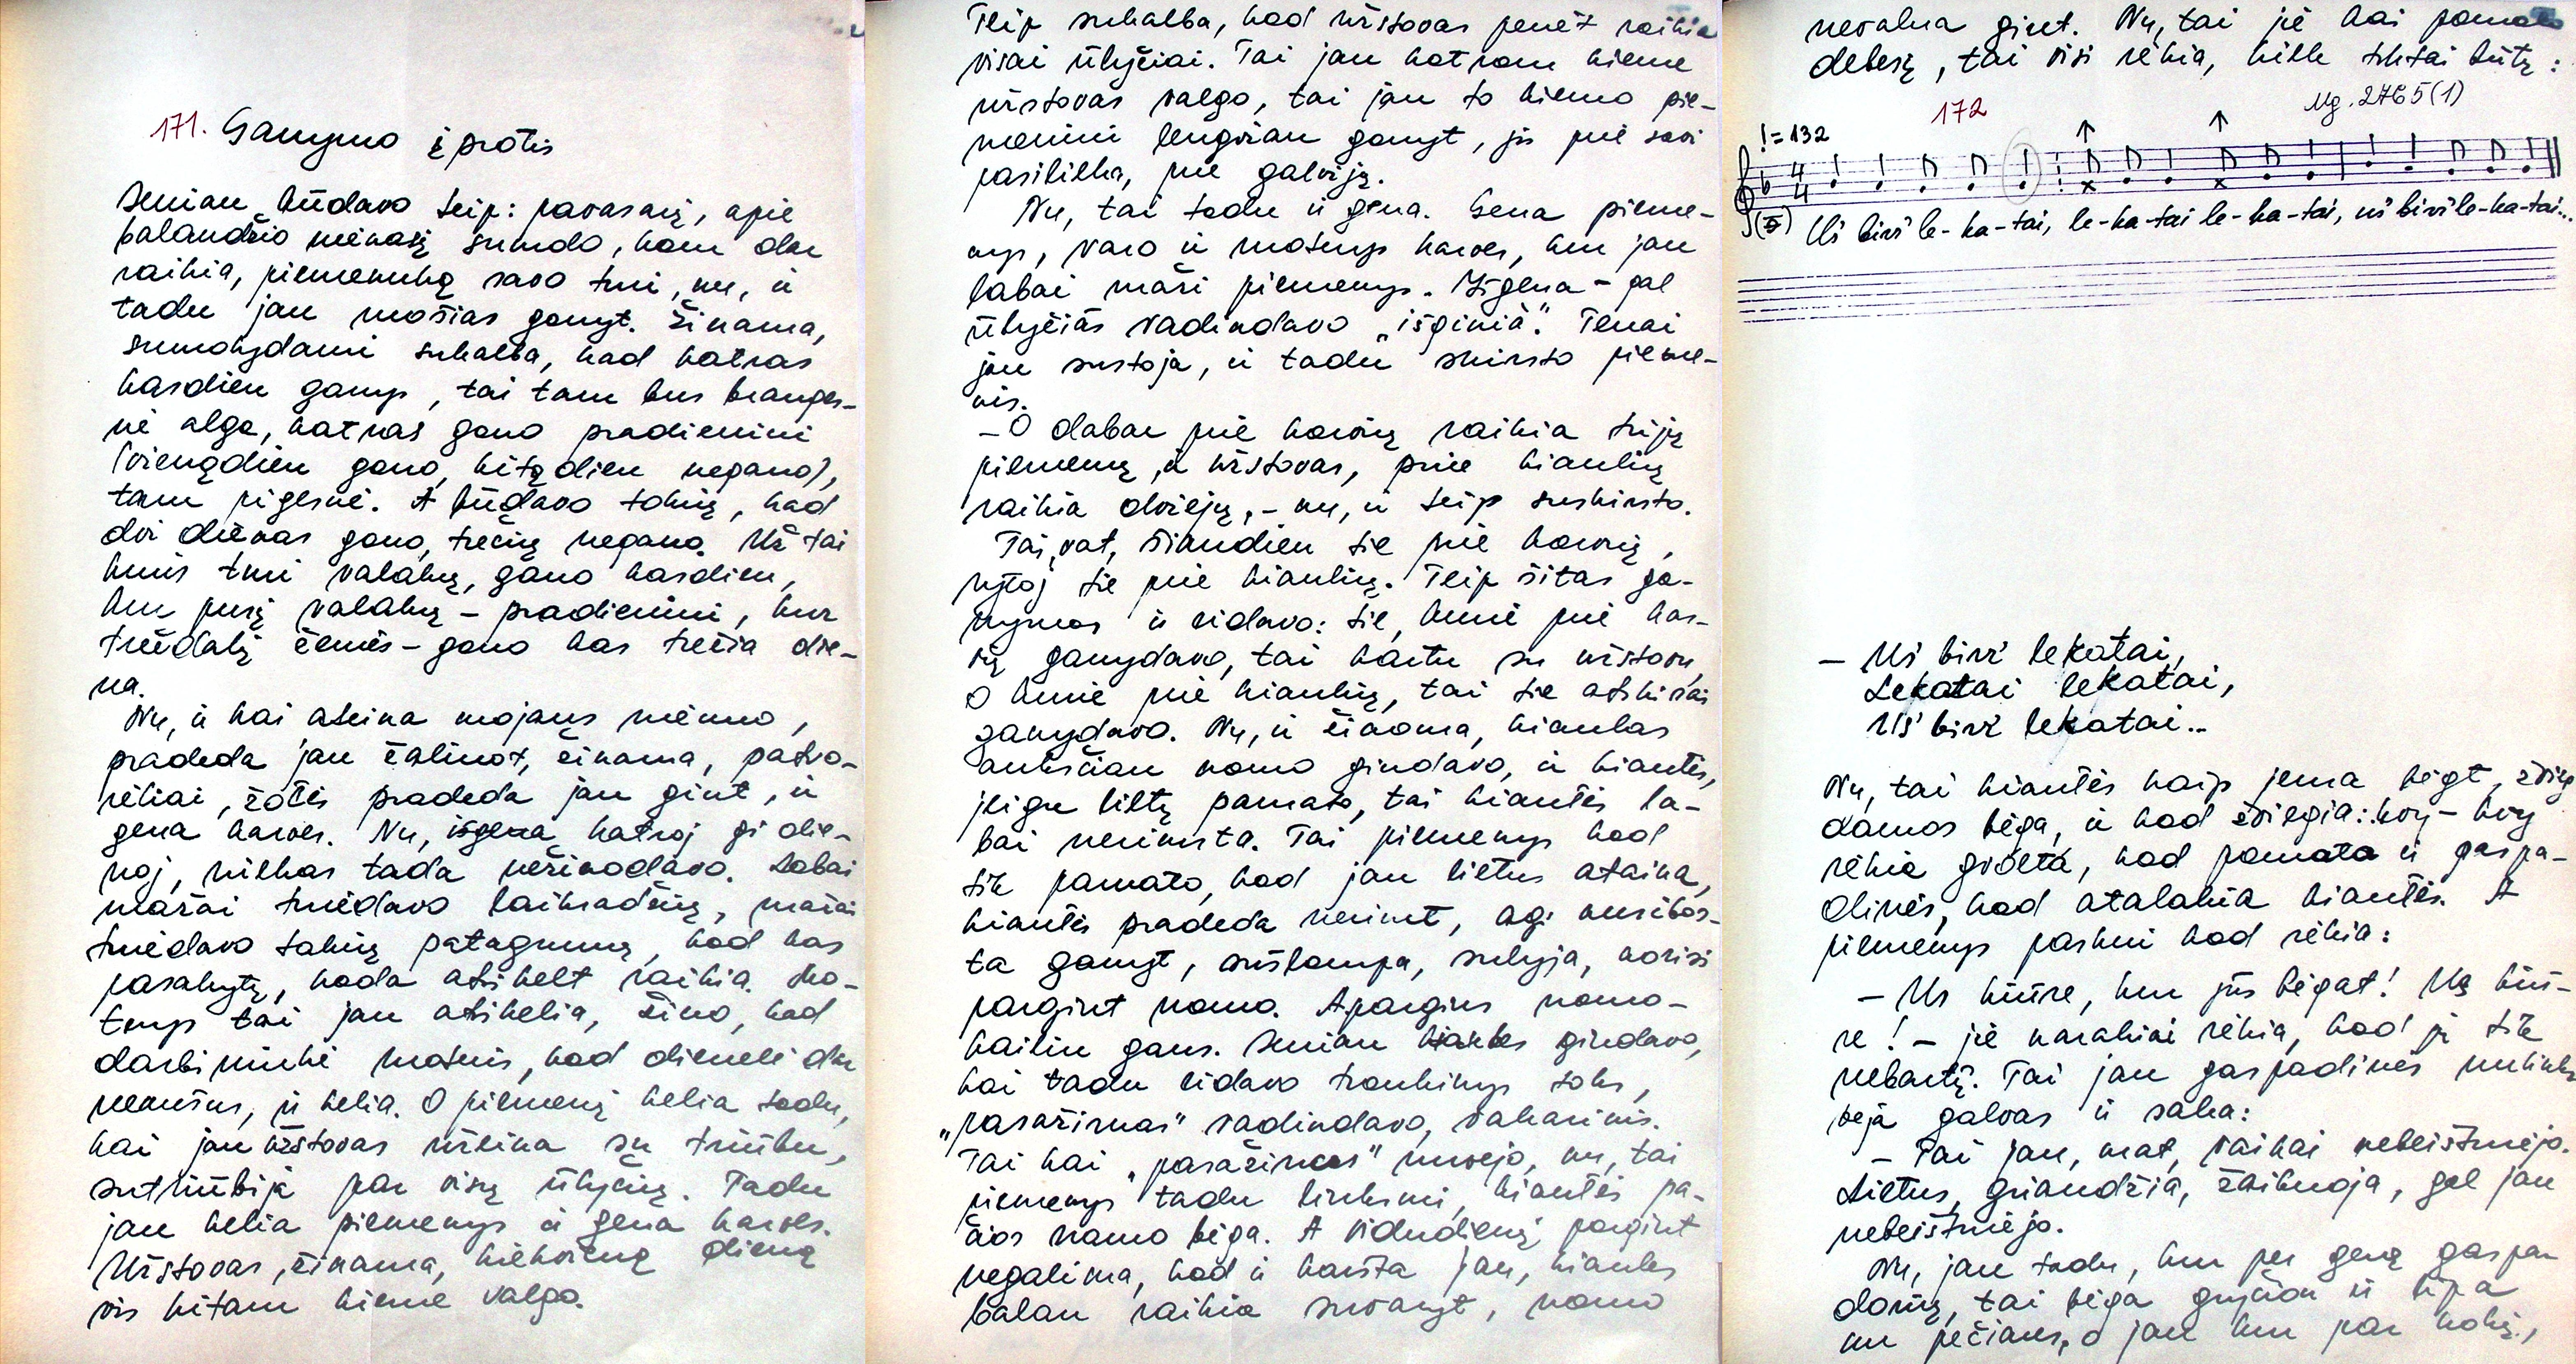 171. Ganymo įprotis
Seniau būdavo teip: pavasarį, apie
balandžio mėnasį sumdo, kam dar
raikia, piemenuką savo turi, nu, ir
tadu jau mošias ganyt. Žinama,
sumdydami sukalba, kad katras
kasdien ganys, tai tam bus branges-
nė alga, katras gano pradieniui
(vienądien gano, kitądien negano),
tam pigesnė. A būdavo tokių, kad
dvi dienas gano, trečių negano. Už tai
kuris turi valaką, gano kasdien,
kur pusį valaką – pradieniui, kur
trečdalį žemės – gano kas trečia die-
na.
Nu, ir kai ateina mojaus mėnuo,
pradeda jau žaliuot, žinama, patvo-
rėliai, žolės pradeda jau gint, ir
gena karves. Nu, išgena katroj gi die-
noj, nilkas tada nežinodavo. Labai
mažai turėdavo laikradžių, mažai
turėdavo takių patagumų, kad kas
pasakytų, kada atsikelt raikia. Mo-
terys tai jau atsikelia, žino, kad
darbininkė moteris, kad dienelė dar
neaušus, ir kelia. O piemenį kelia tadu,
kai jau užstovas užeina su triūbu,
sutriūbija par visų ūlyčių. Tadu
jau kelia piemenys ir gena karves.
Užstovas, žinama, kiekvieną dieną
vis kitam kieme valgo.
Teip sukalba, kad užstovas penėt raikia
visai ūlyčiai. Tai jau katram kieme
užstovas valgo, tai jau to kiemo pie-
meniui lengviau ganyt, jis prie savi
pasilieka, prie galvijų.
Nu, tai tadu ir gena. Gena pieme-
nys, varo ir moterys karves, kur jau
labai maži piemenys. Išgena – gal
ūlyčias vadindavo „išginià“. Tenai
jau sustoja, ir tadu skirsto pieme-
nis.
– O dabar prie karvių raikia trijų
piemenų, ir užstovas, prie kiaulių
raikia dviejų, – nu, ir teip suskirsto.
Tai, vat, šiandien tie prie karvių,
rytoj tie prie kiaulių. Teip šitas ga-
nymas ir eidavo: tie, kurie prie kar-
vių ganydavo, tai kartu su užstovu,
o kurie prie kiaulių, tai tie atskirai
ganydavo. Nu, ir žinoma, kiaulas
anksčiau namo gindavo, ir kiaulės,
jeigu lietų pamato, tai kiaulės la-
bai nerimsta. Tai piemenys kad
tik pamato, kad jau lietus ataina,
kiaulės pradeda nerimt, agi nusibos-
ta ganyt, sušlampa, sulyja, norisi
pargint namo. A pargins namo –
kailin gaus. Seniau kiaules gindavo,
kai tadu eidavo traukinys toks,
„pasažirnas“ vadindavo, vakarinis.
Tai kai „pasažirnas“ nuvėjo, nu, tai
piemenys tadu linksmi, kiaulės pa-
čios namo bėga. A vidudienį pargint
negalima, kad ir karšta jau, kiaules
balan raikia suvaryt, namo
nevalna gint. Nu, tai jė kai pamato
debesį, tai visi rėkia, kiek tiktai būtų:
172
Mg. 2765(1)
♩=132
Uš birž le-ka-tai, le-ka-tai le-ka-tai, uš birž le-ka-tai...
– Uš birž lekatai,
Lekatai lekatai,
Uš birž lekatai...
Nu, tai kiaulės kaip jema bėgt, žvieg-
damos bėga, ir kad žviegia: kvy – kvy
rėkia gvolta, kad pamato ir gaspa-
dinės, kad atalakia kiaulės. A
piemenys paskui kad rėkia:
– Us kiūre, kur jūs bėgat! Us kiū-
re! – jė naračiai rėkia, kad jų tik
nebartų. Tai jau gaspadinės nulinks-
beja galvas ir saka:
– Tai jau, mat, vaikai nebeištvėrėjo.
Lietus, griaudžia, žaibuoja, gal jau
nebeištvėrėjo.
Nu, jau tadu, kur per gerų gaspa-
darių, tai bėga gryčion ir lipa
an pečiaus, o jau kur par kokį,